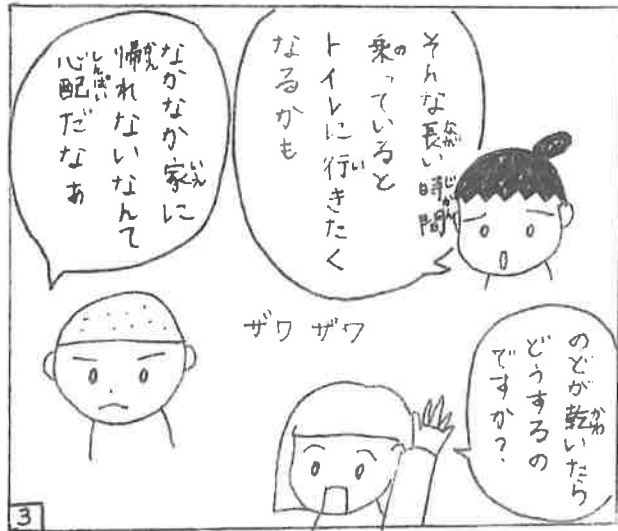 そんな長い時間
乗っていると
トイレに行きたく
なるかも
なかなか家に
帰れないなんて
心配だなぁ
ザワ ザワ
のどが乾いたら
どうするの
ですか?
3